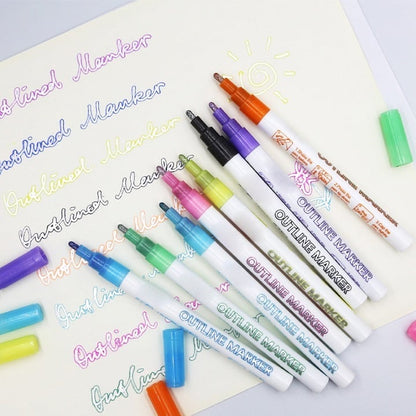 Outlined Marker
Outlined Marker
Outlined Marker
Outlined Marker
Outlined
Outlined Marker
Outlined
Outlined Marker
OUTLINE MARKER
OUTLINE MARKER
OUTLINE MARKER
OUTLINE MARKER
OUTLINE MARKER
OUTLINE MARKER
OUTLINE MARKER